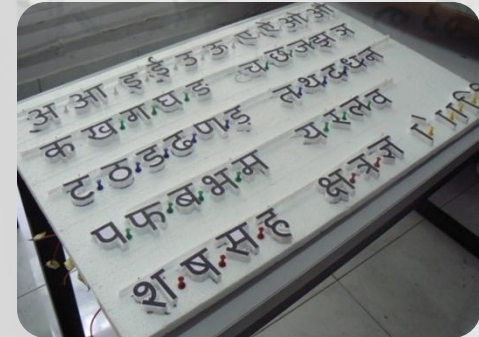 अ आ इ ई उ ऊ ए ऐ ओ औ
क ख ग घ ङ च छ ज झ ञ
ट ठ ड ढ ण ड़ त थ द ध न
प फ ब भ म य र ल व
श ष स ह क्ष त्र ज्ञ